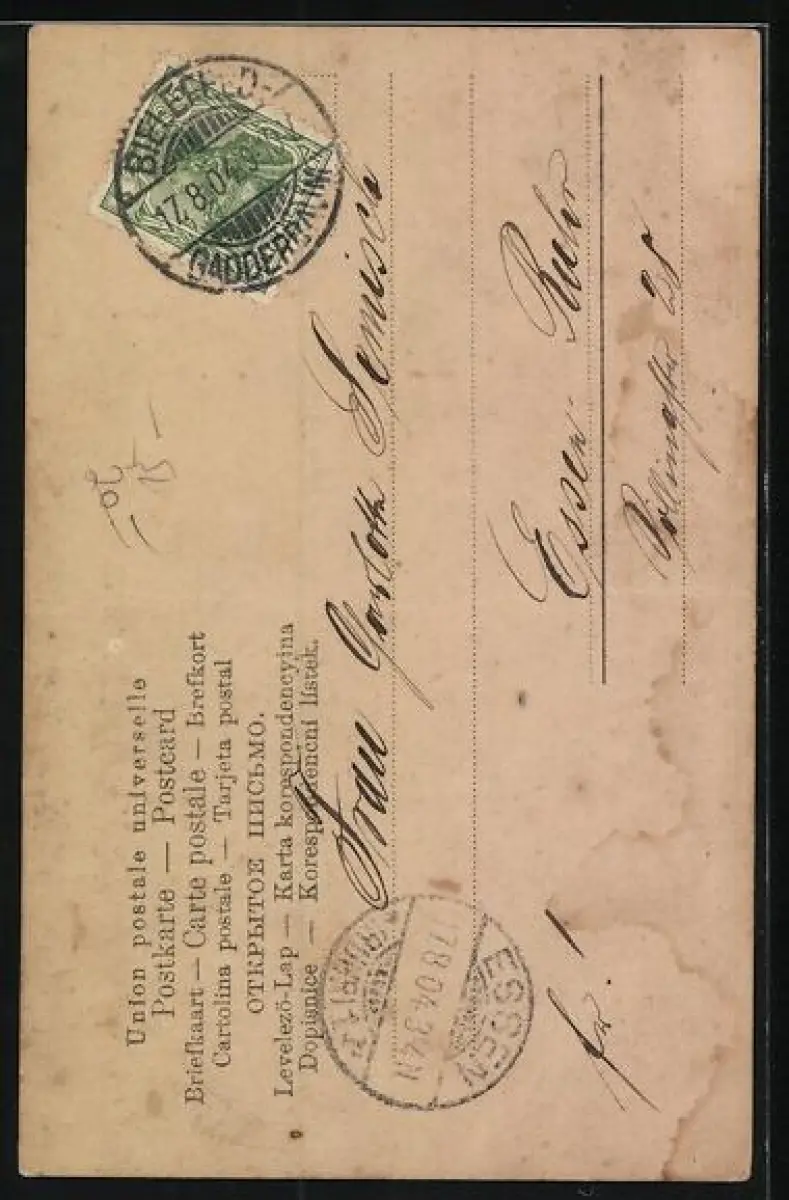 Union postale universelle
Postkarte — Postcard
Briefkaart — Carte postale — Brefkort
Cartolina postale — Tarjeta postal
ОТКРЫТОЕ ПИСЬМО.
Levelező-Lap — Karta korespondencyjna
Dopisnice — Korespondenční lístek.
BIELEFELD-
17.8.04
GADDERBAUM
Frau
Essen Ruhr
ESSEN
17.8.04.
(RUHR)
fr. 1
15 —